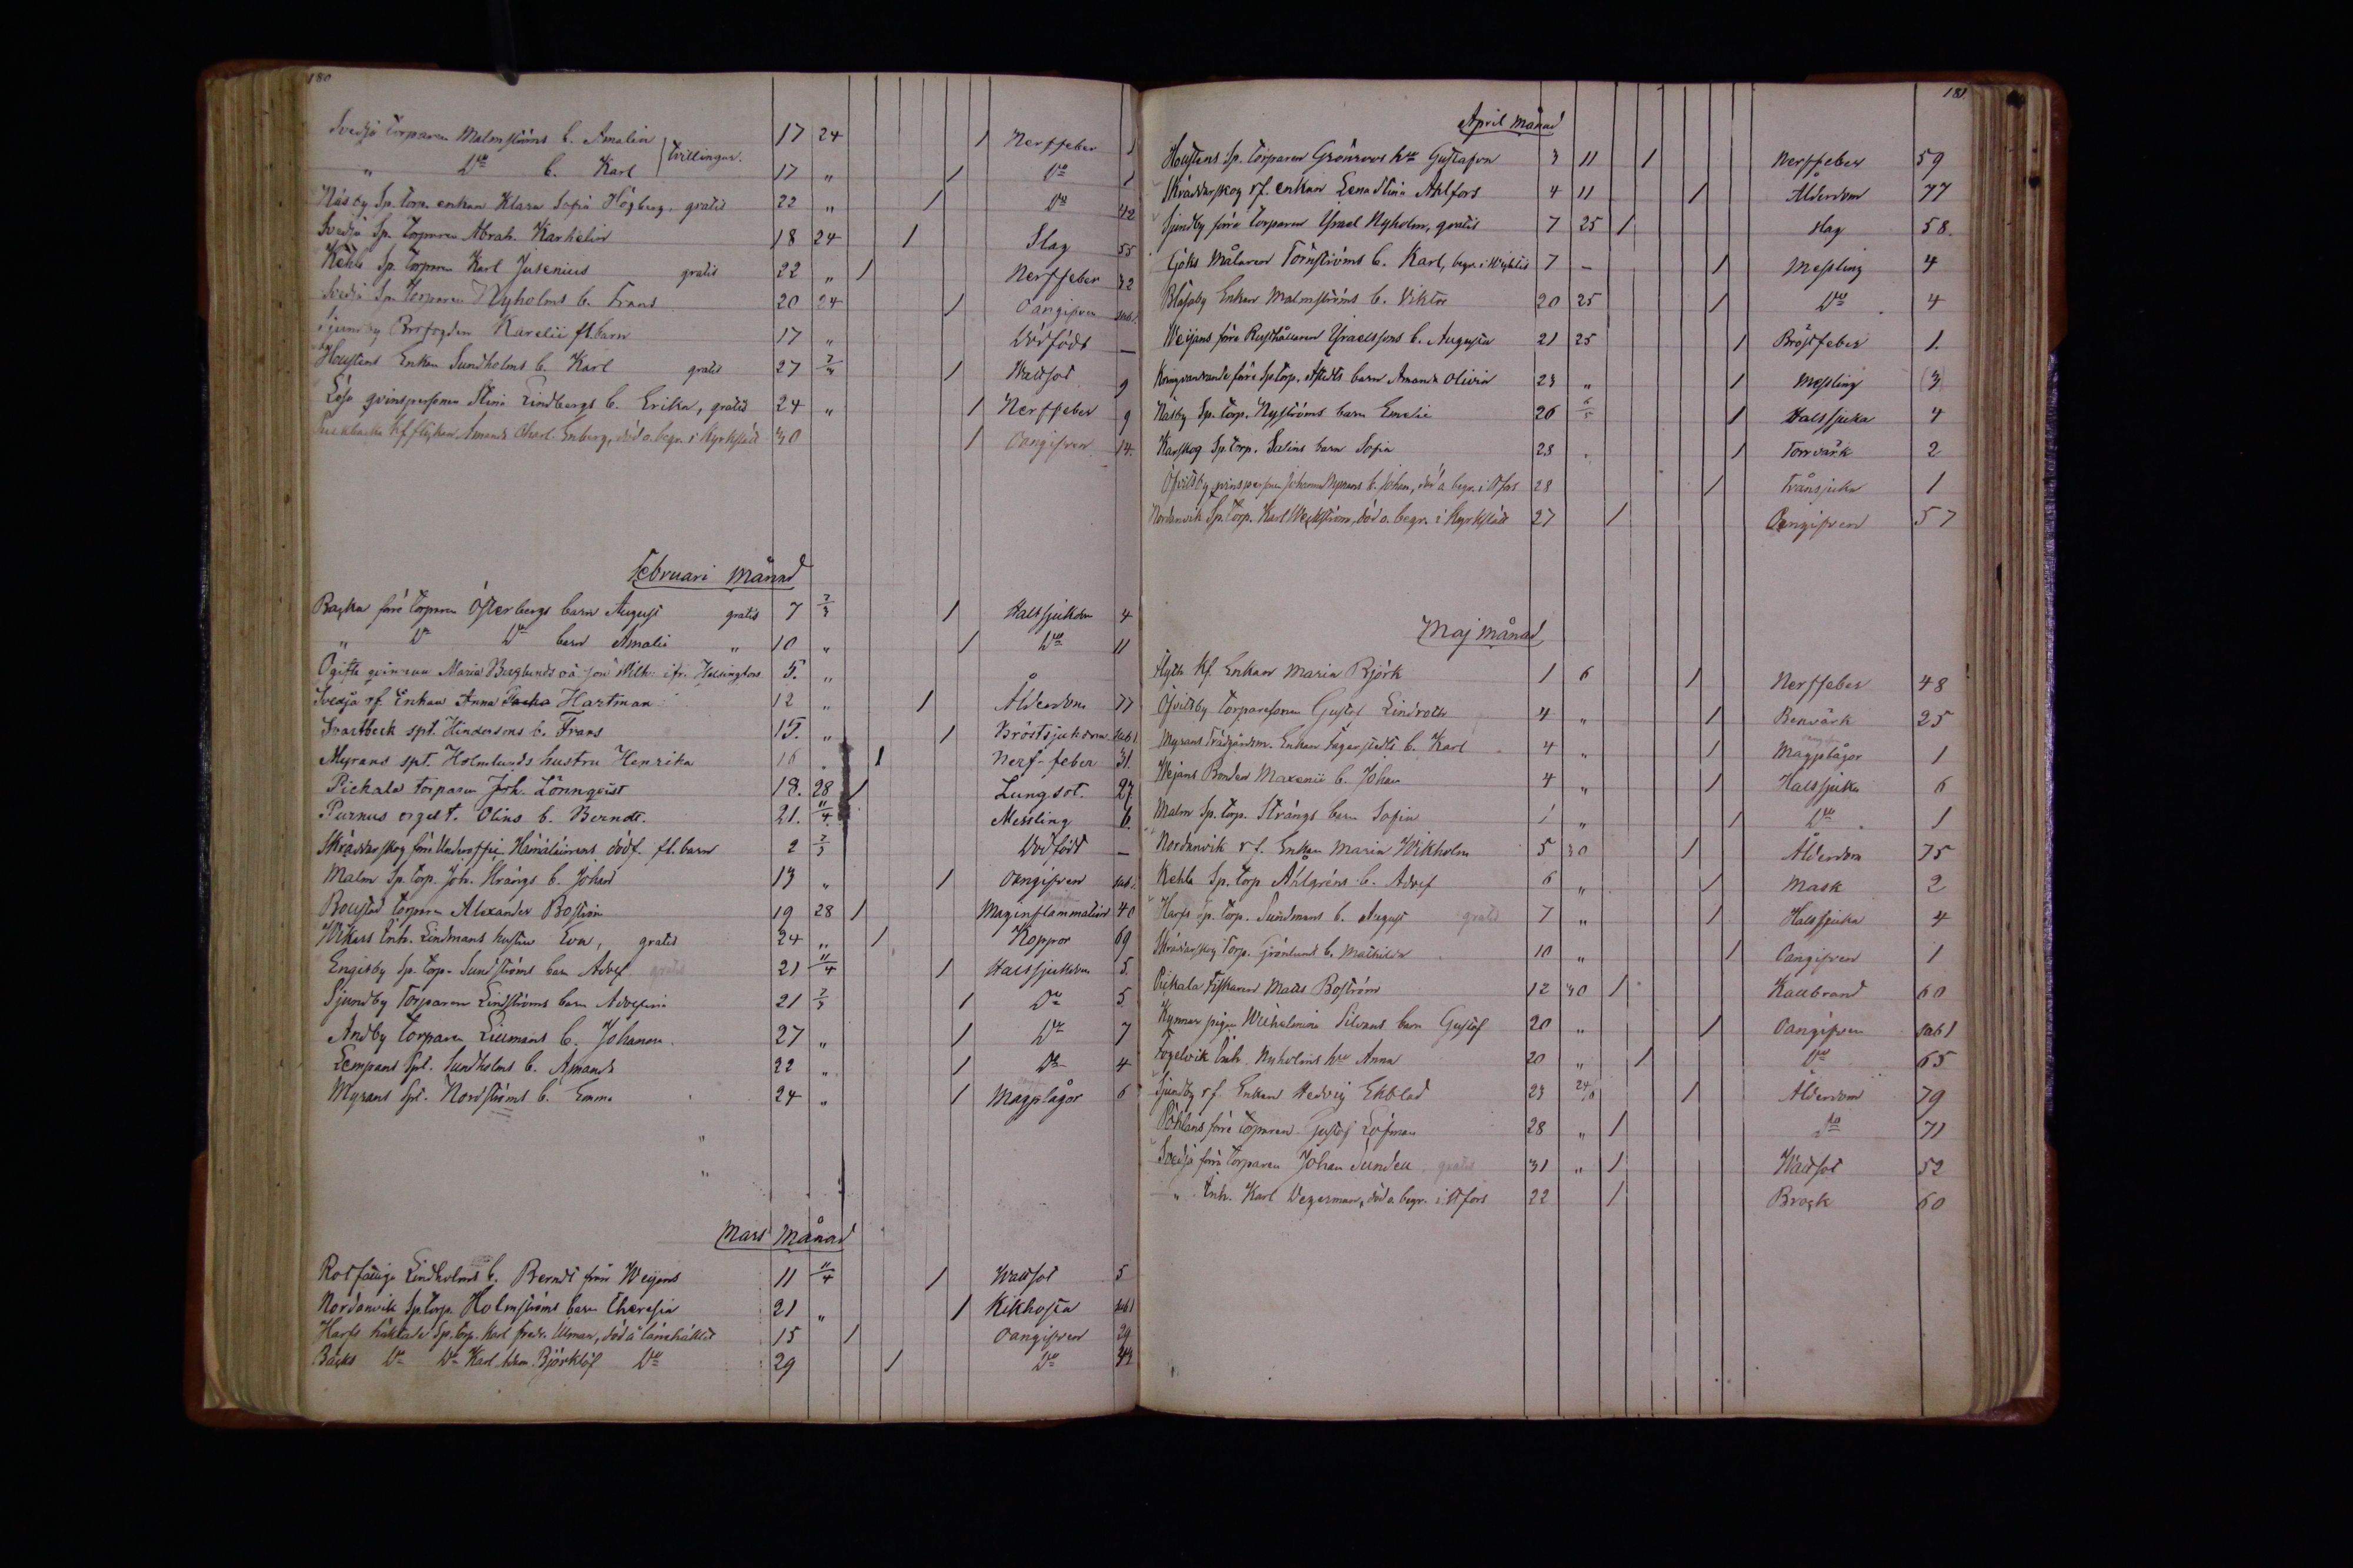 180
Svedja Torparen Malmströms b. Amalia } Tvillingar. 17 24 / Nerffeber 1
" Do b. Karl 17 " / Do 1
Näsby Sp. torp. enkan Klara Sofia Högberg, gratis 22 " / Do 42
Svedja Sp. Torparen Abrah. Karhelin 18 24 / Slag 55
Kehla Sp. Torparen Karl Jusenius gratis 22 " / Nerffeber 32
Svedja Sp. Torparen Nyholms b. Frans 20 24 / Oangifven
Sjundby Brofogden Karelii fl. barn 17 " Dödfödt —
Houstens Enkan Sundholms b. Karl gratis 27 7/3 / Wattsot 9
Lösa qvinspersonen Stina Lindbergs b. Erika, gratis 24 " / Nerffeber 9
flickan Amanda Charl. Enberg, död o. begr. i Kyrkslätt 30 / Oangifven 14.
Februari Månad
Backa förre Torparen Österbergs barn August gratis 7 7/3 / Halssjukdom 4
" Do Do barn Amalia " 10 " / Do 11
Ogifta qvinnan Maria Berglunds oä son Wilh. ifr. Helsingfors 5. "
Svedja rf. Enkan Anna Hartman 12 " / Ålderdom 77
Svartbeck spt. Hindersons b. Frans 15. " / Bröstsjukdom
Myrans spt. Holmlunds hustru Henrika 16 " 1 Nerf-feber 31.
Pickala torparen Joh. Lönnqvist 18. 28 / Lungsot. 27.
Purnus Olins b. Berndt. 21. 11/4 Messling 6.
Skräddarskog förre Underoffic. dödf. fl. barn 2 7/3 Dödfödt —
Malm Sp. Torp. Joh. Strängs b. Johan 13 " / Oangifven
Boustad Torparen Alexander Boström 19 28 / Maginflammation 40
Wikars Inh. Lindmans hustru Eva, gratis 24 " / Koppor 69
Engisby Sp. Torp. Sundströms barn Adolf gratis 21 11/4 / Halssjukdom 5.
Sjundby Torparen Lindströms barn Adolfina 21 7/3 / Do 5
Andby Torparen Liemans b. Johanna. 27 " / Do 7
Lempans Spt. Sundholms b. Amanda 22 " / Do 4
Myrans Spt. Nordströms b. Emma 24 " / Magplågor 6
Mars Månad
Rotfattige Lindholms b. Berndt från Weijans 11 11/4 / Wattsot 5
Nordanvik Sp. Torp. Holmströms barn Theresia 21 " / Kikhosta
Harfs häktade Sp. Torp. Karl Fredr. Ulman, död å länehäktet 15 / Oangifven 29
Bäcks Do Do Karl Björklöf Do 29 / Do 43
181
April Månad
Houstens Sp. Torparen Grönroos hru Gustafva 3 11 / Nerffeber 59
Skräddarskog rf. enkan Lena Stina Ahlfors 4 11 / Ålderdom 77
Sjundby förre Torparen Israel Nyholm, gratis 7 25 / slag 58.
Göks Målaren Törnströms b. Karl, begr. i 7 — / Messling 4
Blåsaby Enkan Malmströms b. Viktor 20 25 / Do 4
Weijans förre Rusthållaren Israelssons b. Augusta 21 25 / Bröstfeber 1.
Kringvandrande förre Sp. Torp. Åstedts barn Amanda Olivia 23 " / Messling 3
Näsby Sp. Torp. Nyströms barn Emelie 26 6/5 / Halssjuka 4
Karskog Sp. Torp. Salins barn Sofia 23 " / Torrvärk 2
Öfvitsby qvinspersonen Johanna b. Johan, död o. begr. i H:fors 28 / Trånsjuka 1
Nordanvik Sp. Torp. Karl Weckström, död o. begr. i Kyrkslätt 27 / Oangifven 57
Maj Månad
Flyth Kf. Enkan Maria Björk 1 6 / Nerffeber 48
Öfvitsby Torparesonen Gustaf Lindroth 4 " / Benvärk 25
Myrans Trädgårdsm. Enkan Fagerstedts b. Karl 4 " / Magplågor 1
Wejans Bonden Maxenii b. Johan 4 " / Halssjuka 6
Malm Sp. Torp. Strängs barn Sofia 1 " / Do 1
Nordanvik rf. Enkan Maria Wikholm 5 30 / Ålderdom 75
Kehla Sp. Torp Åhlgréns b. Adolf 6 " / Mask 2
Harfs Sp. Torp. Sundmans b. August gratis 7 " / Halssjuka 4
Skräddarskog Torp. Grönlunds b. Mathilda 10 " / Oangifven 1
Pickala Fiskaren Matts Boström 12 30 / Kallbrand 60
Kynnar pigan Wilhelmina Silvans barn Gustaf 20 " / Oangifven
Fogelvik Inh. Nyholms hru Anna 20 " / Do 65
Sjundby rf. Enkan Hedvig Ekblad 23 / Ålderdom 79
förre Torparen Gustaf Löfman 28 " / Do 71
Svedja förre Torparen Johan Sundell gratis 31 " / Wattsot 52
" Inh. Karl Wegerman, död o. begr. i H:fors 22 / Brack 60